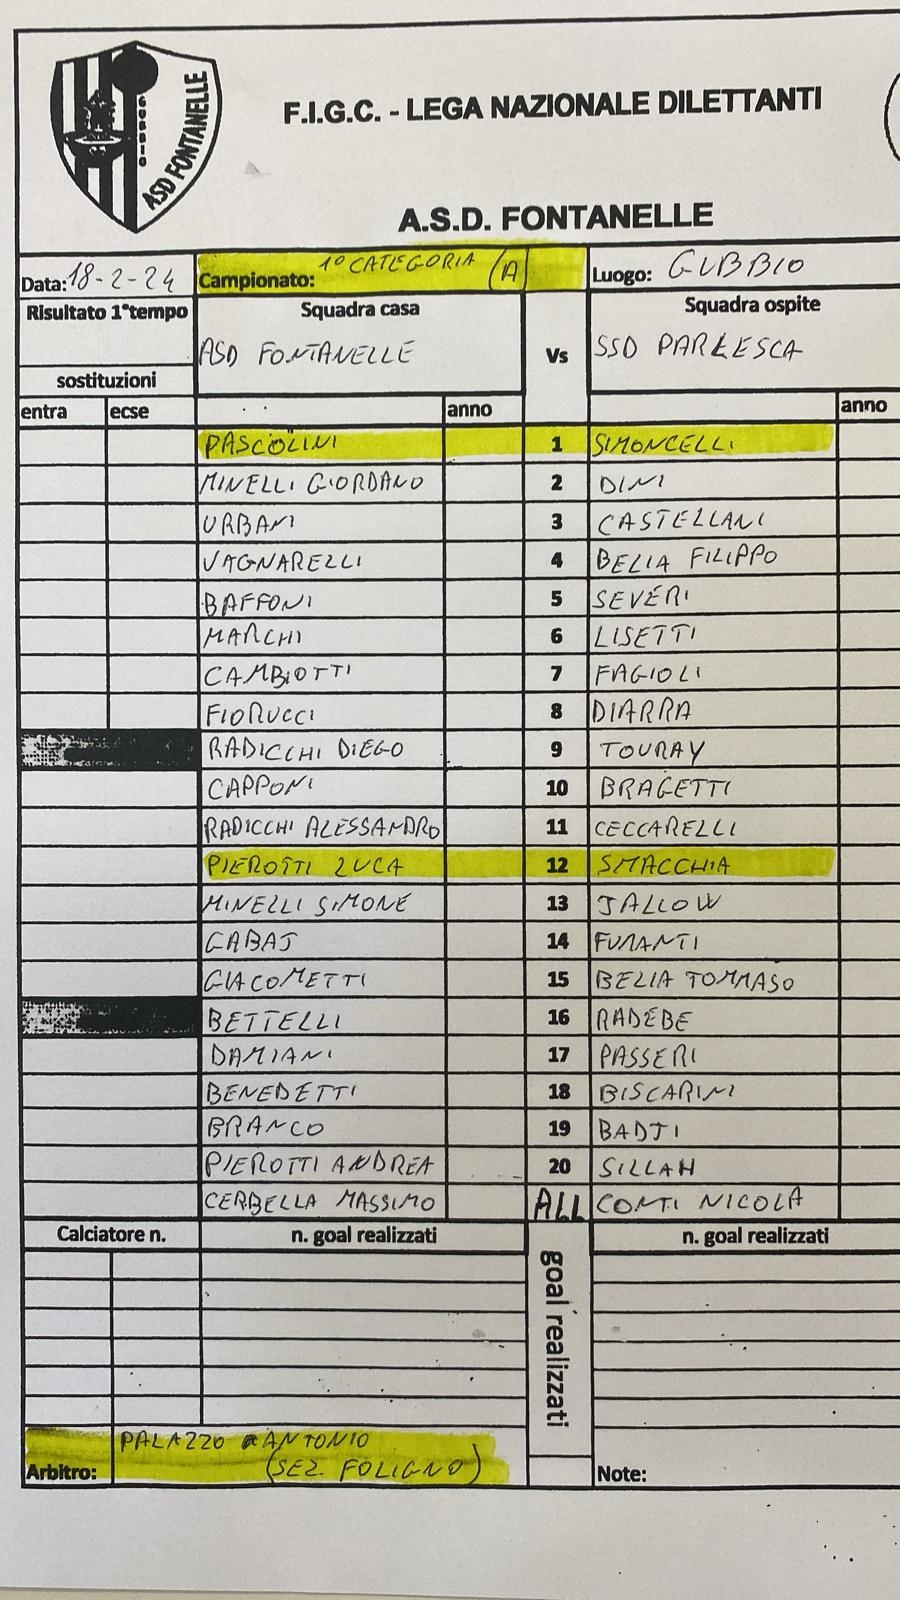 GUBBIO
ASD FONTANELLE
F.I.G.C. - LEGA NAZIONALE DILETTANTI
A.S.D. FONTANELLE
Data: 18-2-24 Campionato: 1° CATEGORIA (A) Luogo: GUBBIO
Risultato 1°tempo Squadra casa Squadra ospite
ASD FONTANELLE Vs SSD PARLESCA
sostituzioni
entra ecse anno anno
PASCOLINI 1 SIMONCELLI
MINELLI GIORDANO 2 DINI
URBANI 3 CASTELLANI
VAGNARELLI 4 BELIA FILIPPO
BAFFONI 5 SEVERI
MARCHI 6 LISETTI
CAMBIOTTI 7 FAGIOLI
FIORUCCI 8 DIARRA
RADICCHI DIEGO 9 TOURAY
CAPPONI 10 BRAGETTI
RADICCHI ALESSANDRO 11 CECCARELLI
PIEROTTI LUCA 12 SMACCHIA
MINELLI SIMONE 13 JALLOW
GABAJ 14 FUMANTI
GIACOMETTI 15 BELIA TOMMASO
BETTELLI 16 RADEBE
DAMIANI 17 PASSERI
BENEDETTI 18 BISCARINI
BRANCO 19 BADJI
PIEROTTI ANDREA 20 SILLAH
CERBELLA MASSIMO ALL CONTI NICOLA
Calciatore n. n. goal realizzati n. goal realizzati
goal realizzati
PALAZZO ANTONIO
Arbitro: (SEZ. FOLIGNO) Note: